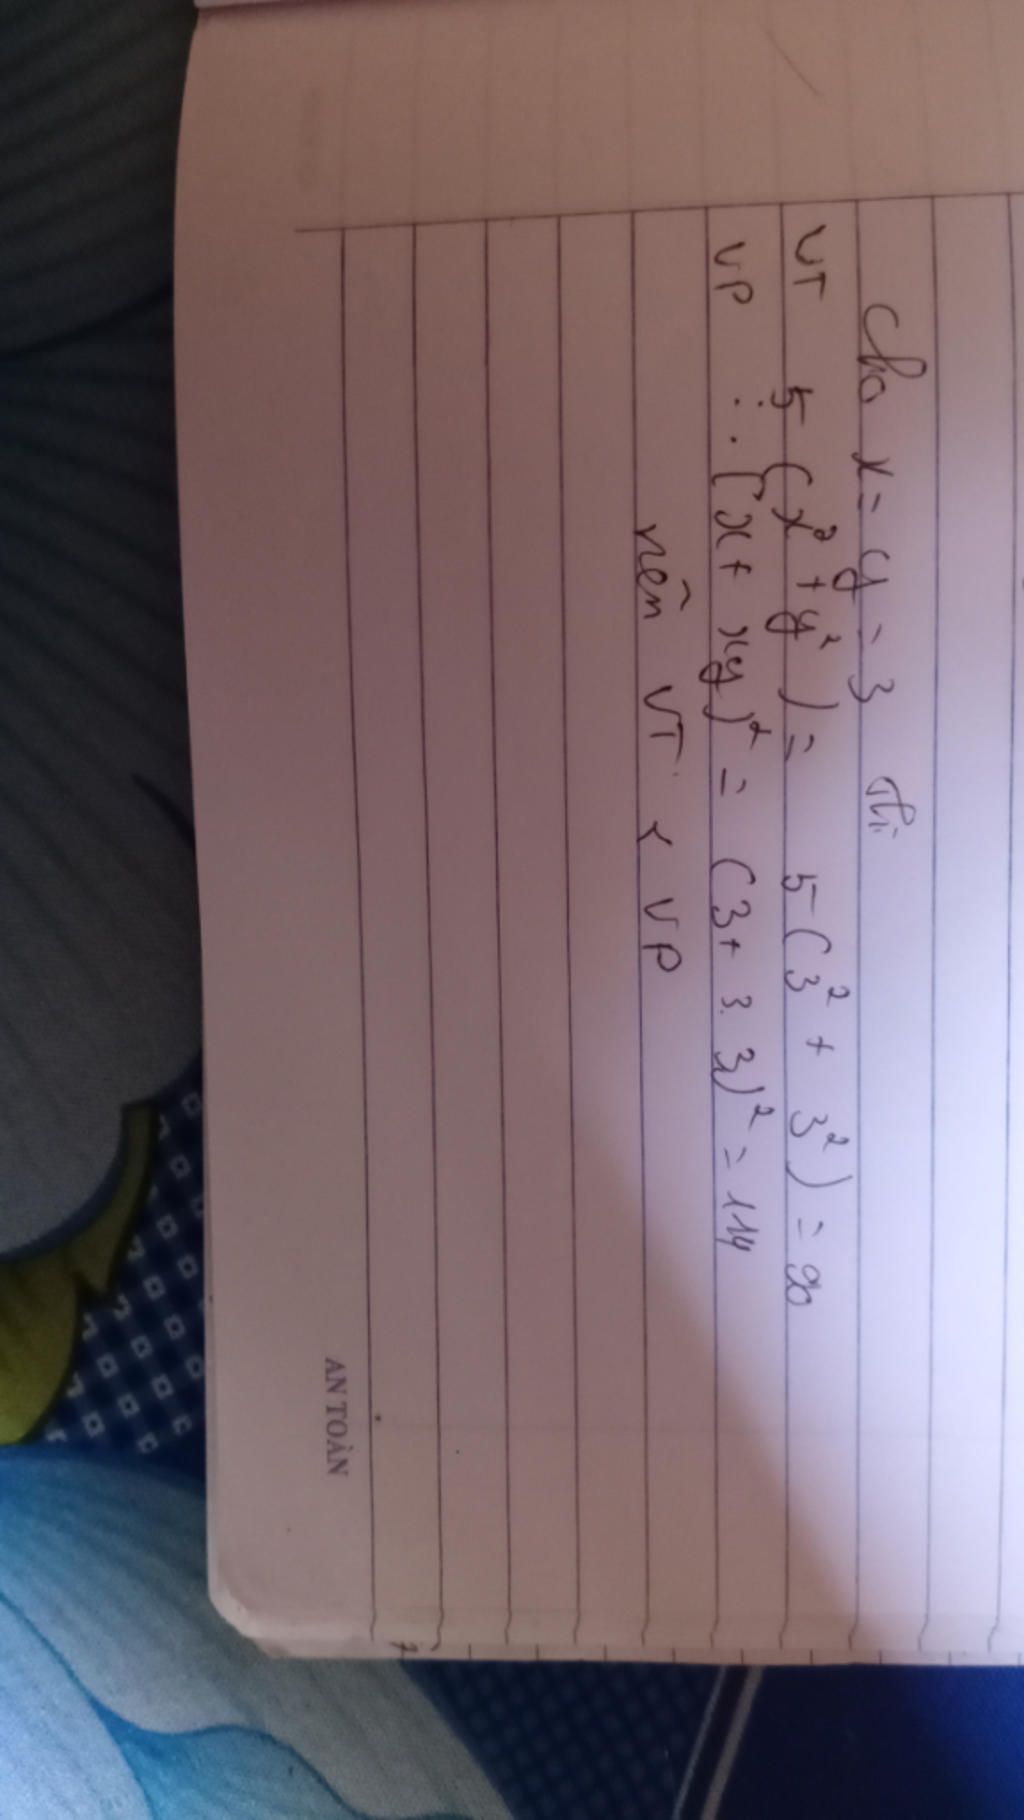 Cho x = y = 3 thì
VT 5 (x² + y²) = 5 (3² + 3²) = 90
VP : . (x + xy)² = (3 + 3. 3)² = 144
nên VT < VP
AN TOÀN